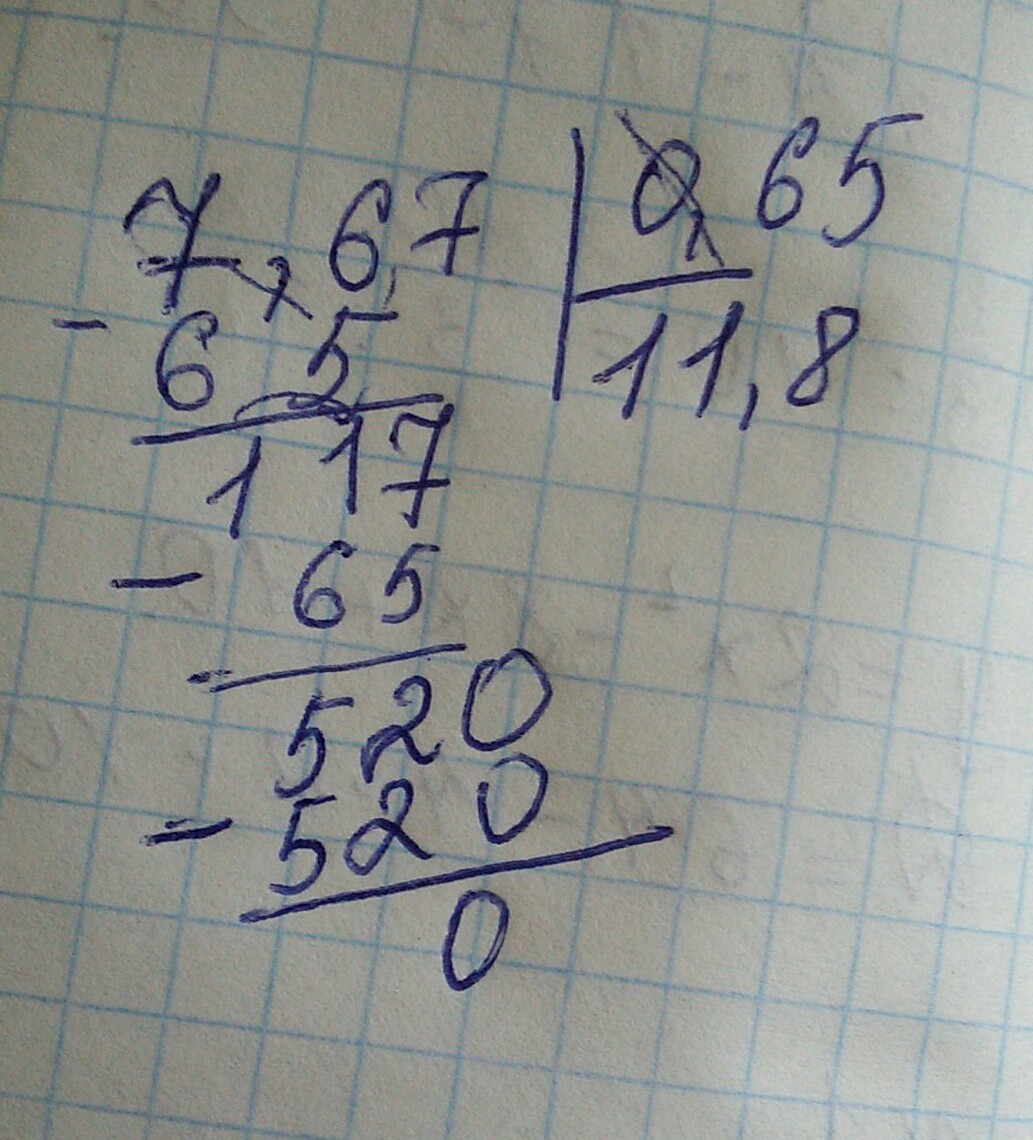 7,67 | 0,65
- 65 | 11,8
117
- 65
520
- 520
0